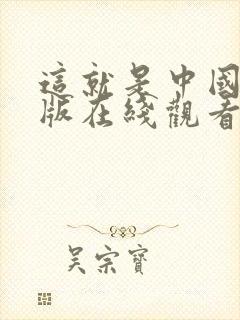 這就是中國
版在綫觀看
吴宗寶